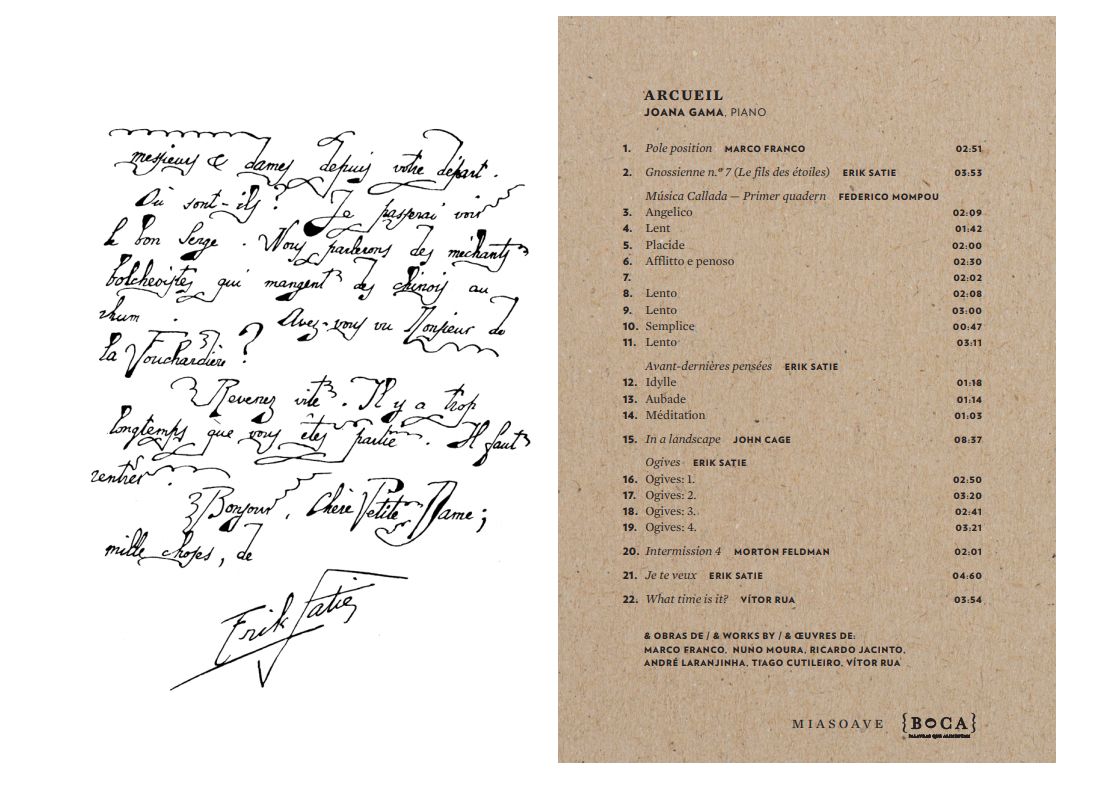 messieurs & dames depuis votre départ.
Où sont-ils? Je passerai voir
le bon Serge. Nous parlerons des méchants
bolchevistes qui mangent des chinois au
rhum. Avez-vous vu Monsieur de
la Vouchardière?
Revenez vite. Il y a trop
longtemps que vous êtes partie. Il faut
rentrer.
Bonjour, Chère Petite Dame;
mille choses, de
Erik Satie
ARCUEIL
JOANA GAMA, PIANO
1. Pole position MARCO FRANCO 02:51
2. Gnossienne n.º 7 (Le fils des étoiles) ERIK SATIE 03:53
Música Callada — Primer quadern FEDERICO MOMPOU
3. Angelico 02:09
4. Lent 01:42
5. Placide 02:00
6. Afflitto e penoso 02:30
7. 02:02
8. Lento 02:08
9. Lento 03:00
10. Semplice 00:47
11. Lento 03:11
Avant-dernières pensées ERIK SATIE
12. Idylle 01:18
13. Aubade 01:14
14. Méditation 01:03
15. In a landscape JOHN CAGE 08:37
Ogives ERIK SATIE
16. Ogives: 1. 02:50
17. Ogives: 2. 03:20
18. Ogives: 3. 02:41
19. Ogives: 4. 03:21
20. Intermission 4 MORTON FELDMAN 02:01
21. Je te veux ERIK SATIE 04:60
22. What time is it? VÍTOR RUA 03:54
& OBRAS DE / & WORKS BY / & ŒUVRES DE:
MARCO FRANCO, NUNO MOURA, RICARDO JACINTO,
ANDRÉ LARANJINHA, TIAGO CUTILEIRO, VÍTOR RUA
MIASOAVE {BOCA}
PALAVRAS QUE ALIMENTAM